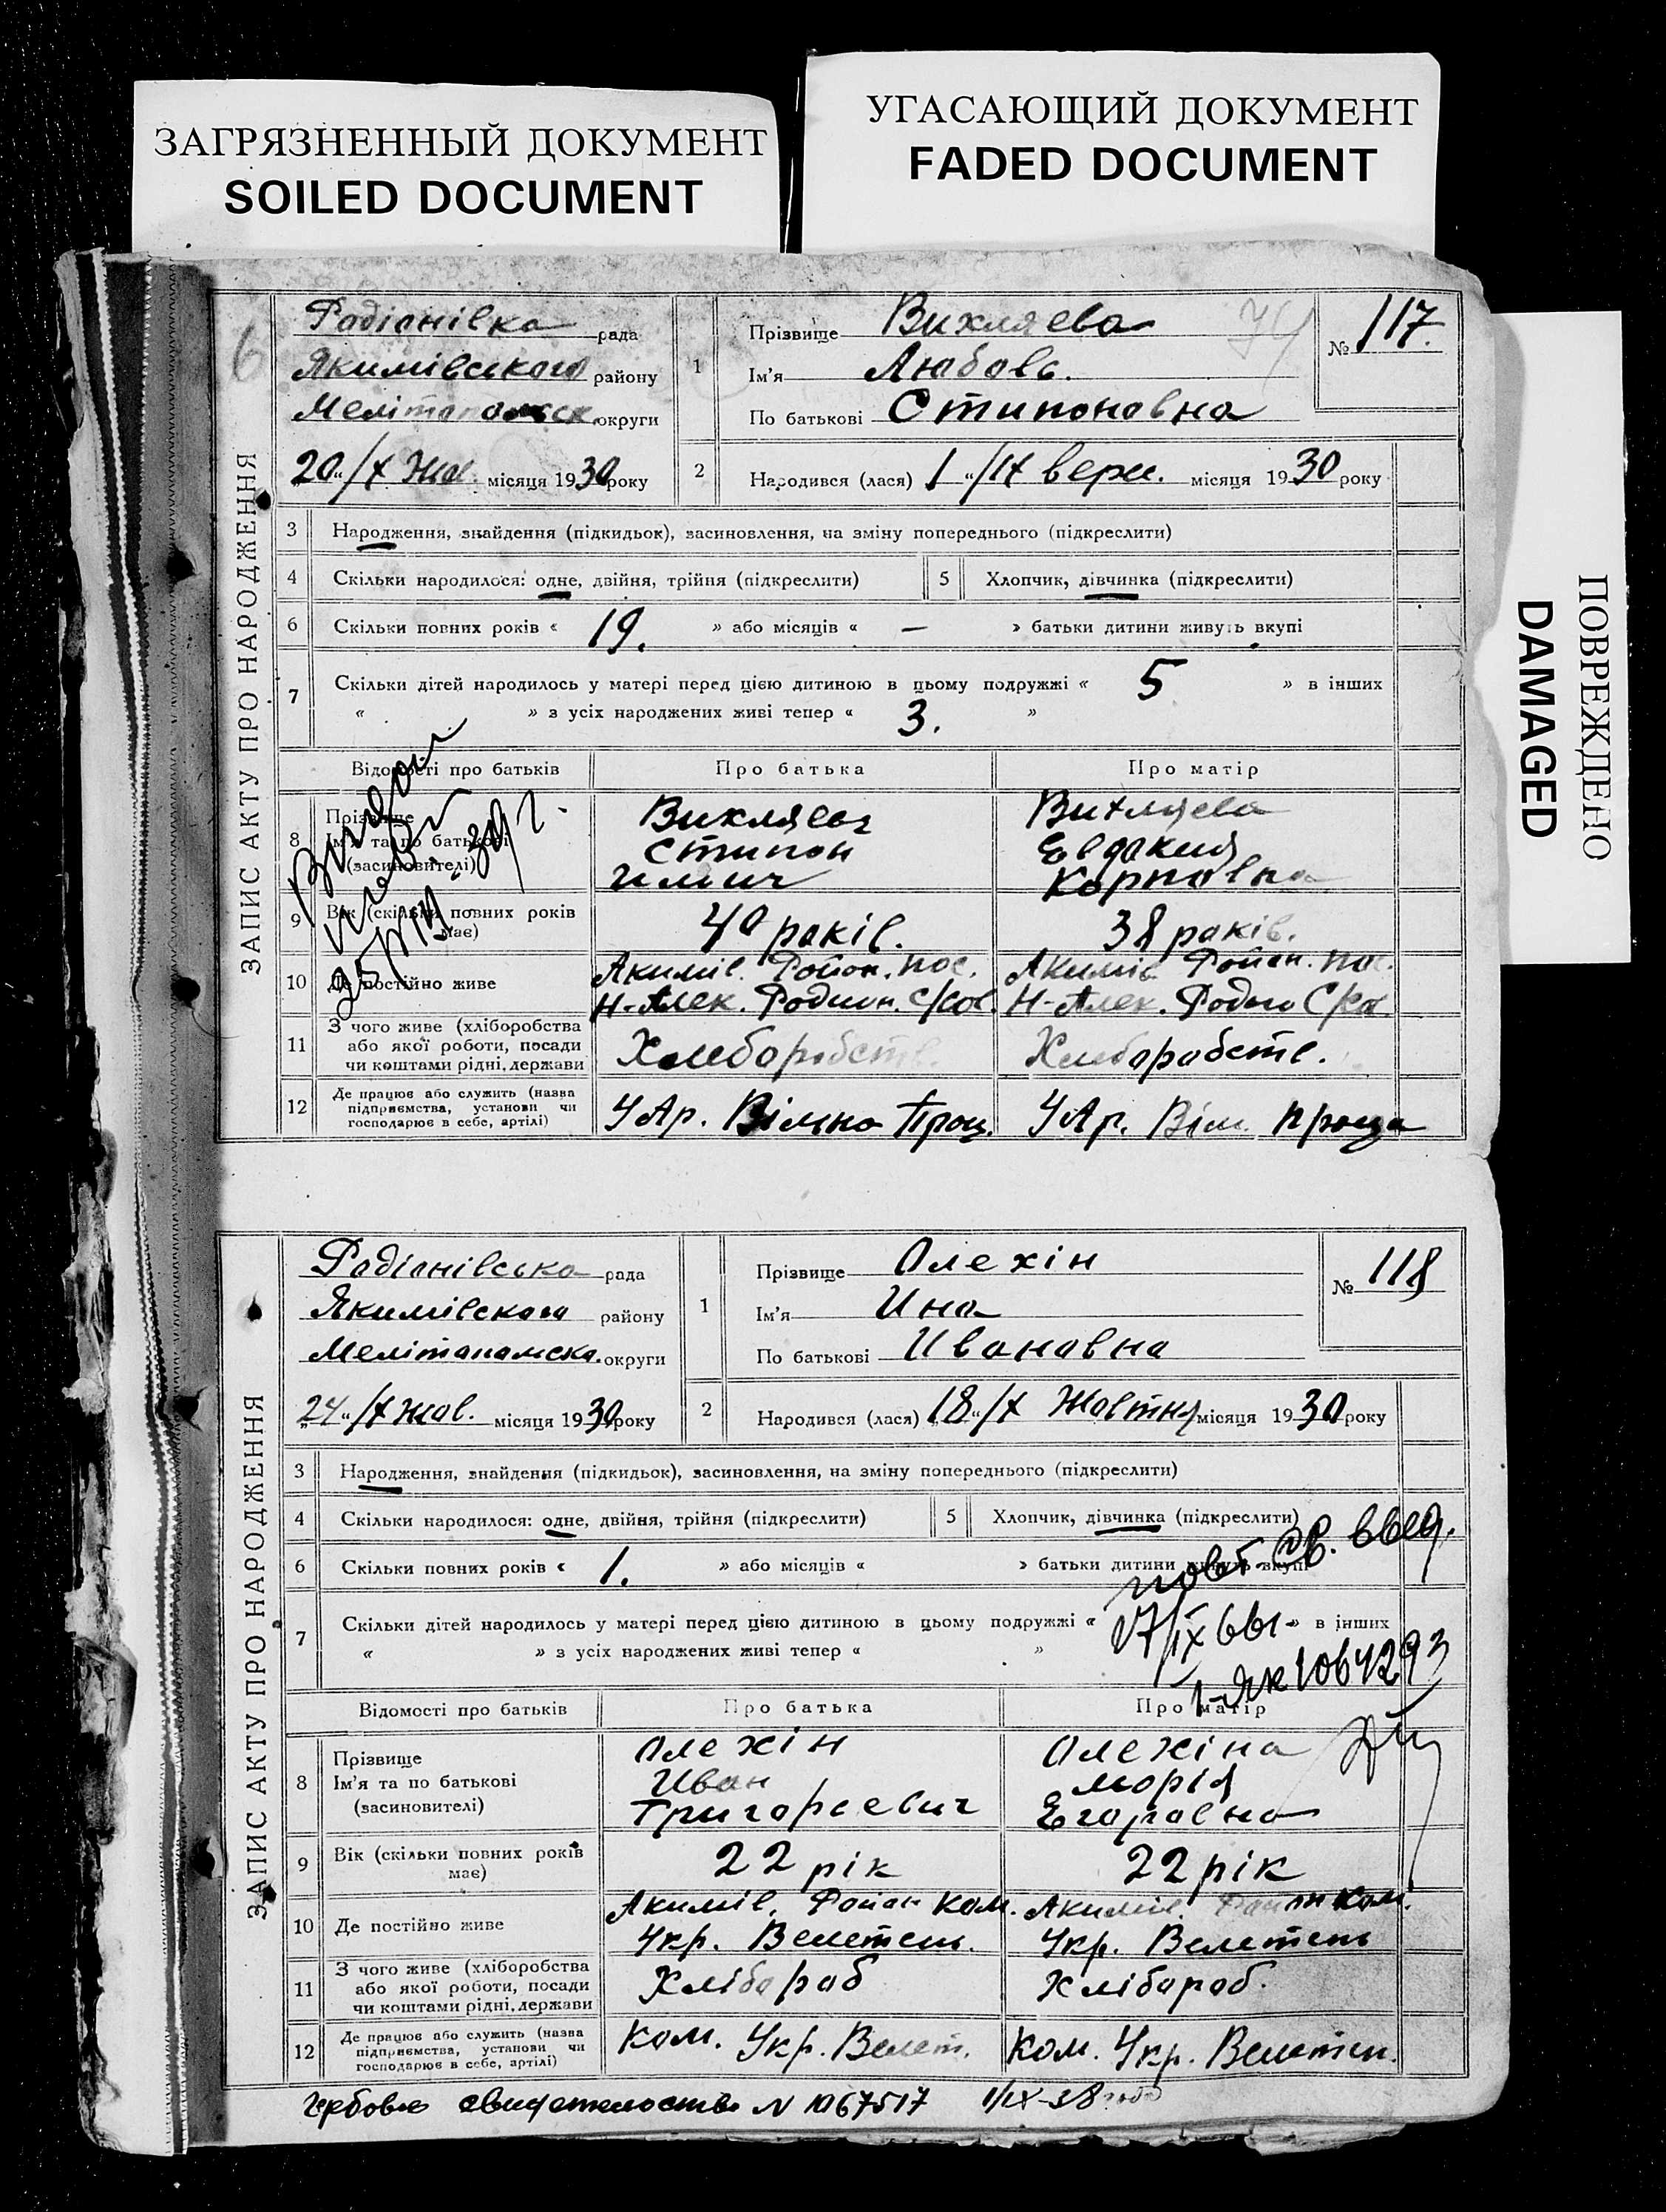 ЗАГРЯЗНЕННЫЙ ДОКУМЕНТ
SOILED DOCUMENT
УГАСАЮЩИЙ ДОКУМЕНТ
FADED DOCUMENT
ПОВРЕЖДЕНО
DAMAGED
ЗАПИС АКТУ ПРО НАРОДЖЕННЯ
Радіонівка рада
Якимівського району
Мелітопольск. округи
20 "/X Жов. місяця 1930 року
1
Прізвище Вихляева
Ім'я Любовь.
По батькові Стипоновна
№ 117.
2 Народився (лася) 1 "/IX верес. місяця 1930 року
3 Народження, знайдення (підкидьок), засиновлення, на зміну попереднього (підкреслити)
4 Скільки народилося: одне, двійня, трійня (підкреслити) 5 Хлопчик, дівчинка (підкреслити)
6 Скільки повних років « 19. » або місяців « — » батьки дитини живуть вкупі
7 Скільки дітей народилось у матері перед цією дитиною в цьому подружжі « 5 » в інших
« » з усіх народжених живі тепер « 3. »
Відомості про батьків Про батька Про матір
8 Прізвище
Ім'я та по батькові
(засиновителі)
Вихляев
Стипон
Илич
Вихляева
Евдокия
Корповна
9 Вік (скільки повних років має) 40 років. 38 років.
10 Де постійно живе
Акимів. Район. пос.
Н-Алек. Родион. С/Ков.
Акимів Район. пос.
Н-Алек. Родио С/Ко
11 З чого живе (хліборобства
або якої роботи, посади
чи коштами рідні, держави
Хлеборобств.
Хлеборобств.
12 Де працює або служить (назва
підприємства, установи чи
господарює в себе, артілі)
УАр. Вільно Прац.
УАр. Віл. Праця
ЗАПИС АКТУ ПРО НАРОДЖЕННЯ
Радіонівсько рада
Якимівского району
Мелітопольско. округи
24 "/X Жов. місяця 1930 року
1
Прізвище Олехін
Ім'я Ина
По батькові Ивановна
№ 118
2 Народився (лася) 18 "/X Жовтня місяця 1930 року
3 Народження, знайдення (підкидьок), засиновлення, на зміну попереднього (підкреслити)
4 Скільки народилося: одне, двійня, трійня (підкреслити) 5 Хлопчик, дівчинка (підкреслити)
6 Скільки повних років « 1. » або місяців « » батьки дитини живуть вкупі
7 Скільки дітей народилось у матері перед цією дитиною в цьому подружжі « » в інших
« » з усіх народжених живі тепер « »
повт. св. выд.
17/IX 66г.
I-ЯК 1064293
Відомості про батьків Про батька Про матір
8 Прізвище
Ім'я та по батькові
(засиновителі)
Олехін
Иван
Григорьевич
Олехіна
Морія
Егоровна
9 Вік (скільки повних років має) 22 рік 22 рік
10 Де постійно живе
Акимів. Район Ком.
Укр. Велетень.
Акимів. Район Ком.
Укр. Велетень
11 З чого живе (хліборобства
або якої роботи, посади
чи коштами рідні, держави
Хлібороб
Хлібороб.
12 Де працює або служить (назва
підприємства, установи чи
господарює в себе, артілі)
Ком. Укр. Велет.
Ком. Укр. Велетен.
Гербовое свидетельство N 1067517 1/IX-38 года